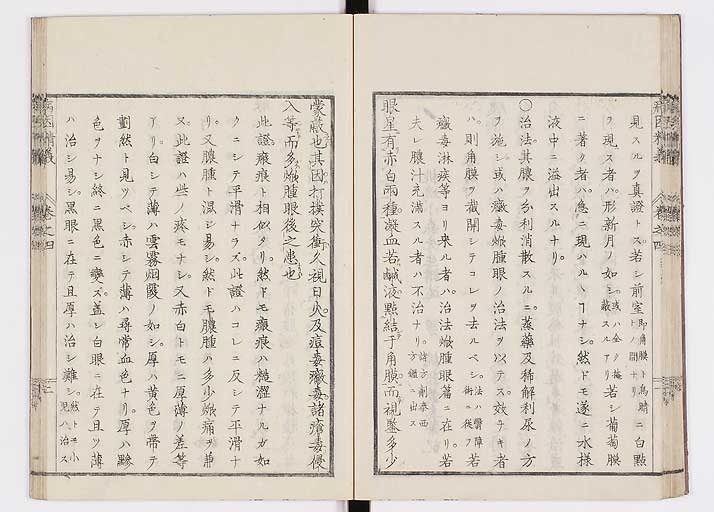 見スルヲ真證トス若シ前室即角膜ト烏睛トノ間ナリニ白點
ヲ現ス者ハ形新月ノ如シ或ハ全ク掩蔽スルアリ若シ葡萄膜
ニ著ク者ハ急ニ現ハルヽヿナシ然ドモ遂ニ水様
液中ニ溢出スルナリ
〇治法其膿ヲ分利消散スルニ蒸藥及稀解利尿ノ方
ヲ施シ或ハ黴毒焮腫眼ノ治法ヲ以テス效ナキ者
ハ則角膜ヲ截開シテコレヲ去ルベシ法ハ醫障術ニ従フ若
黴毒淋疾等ヨリ來ル者ハ治法焮腫眼篇ニ在リ若
夫レ膿汁充満スル者ハ不治ナリ諸方劑泰西方鑑ニ出ス
眼星有赤白両種凝血若鹹液點結于角膜而視鑒多少
蒙蔽也其因打撲突衝久視日火及痘毒黴毒諸瘡毒侵
入等而多焮腫眼後之患也
此證瘢痕ト相似タリ然ドモ瘢痕ハ糙澀ナルガ如
クニシテ平滑ナラズ此證ハコレニ反シテ平滑ナ
リ又膿腫ト混シ易シ然ドモ膿腫ハ多少焮痛ヲ兼
ス此證ハ些ノ疼モナシ又赤白トモニ厚薄ノ差等
アリ白シテ薄ハ雲霧烟靉ノ如シ厚ハ黄色ヲ帶テ
劃然ト見ツベシ赤シテ薄ハ尋常血色ナリ厚ハ黲
色ヲナシ終ニ黒色ニ變ズ蓋シ白眼ニ在テ且ツ薄
ハ治シ易シ黒眼ニ在テ且厚ハ治シ難シ然トモ小児ハ治ス